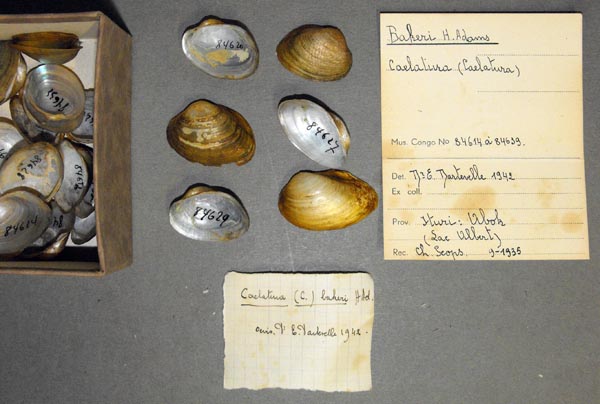 84620
84627
84629
84614
Bakeri H. Adams
Caelatura (Caelatura)
Mus. Congo No 84614 à 84639.
Det. Dr E. Dartevelle 1942
Ex coll.
Prov. Ituri:
(Lac Albert)
Rec. Ch. Scops. 9-1935
Caelatura (C.) bakeri Ad.
Dr E. Dartevelle 1942